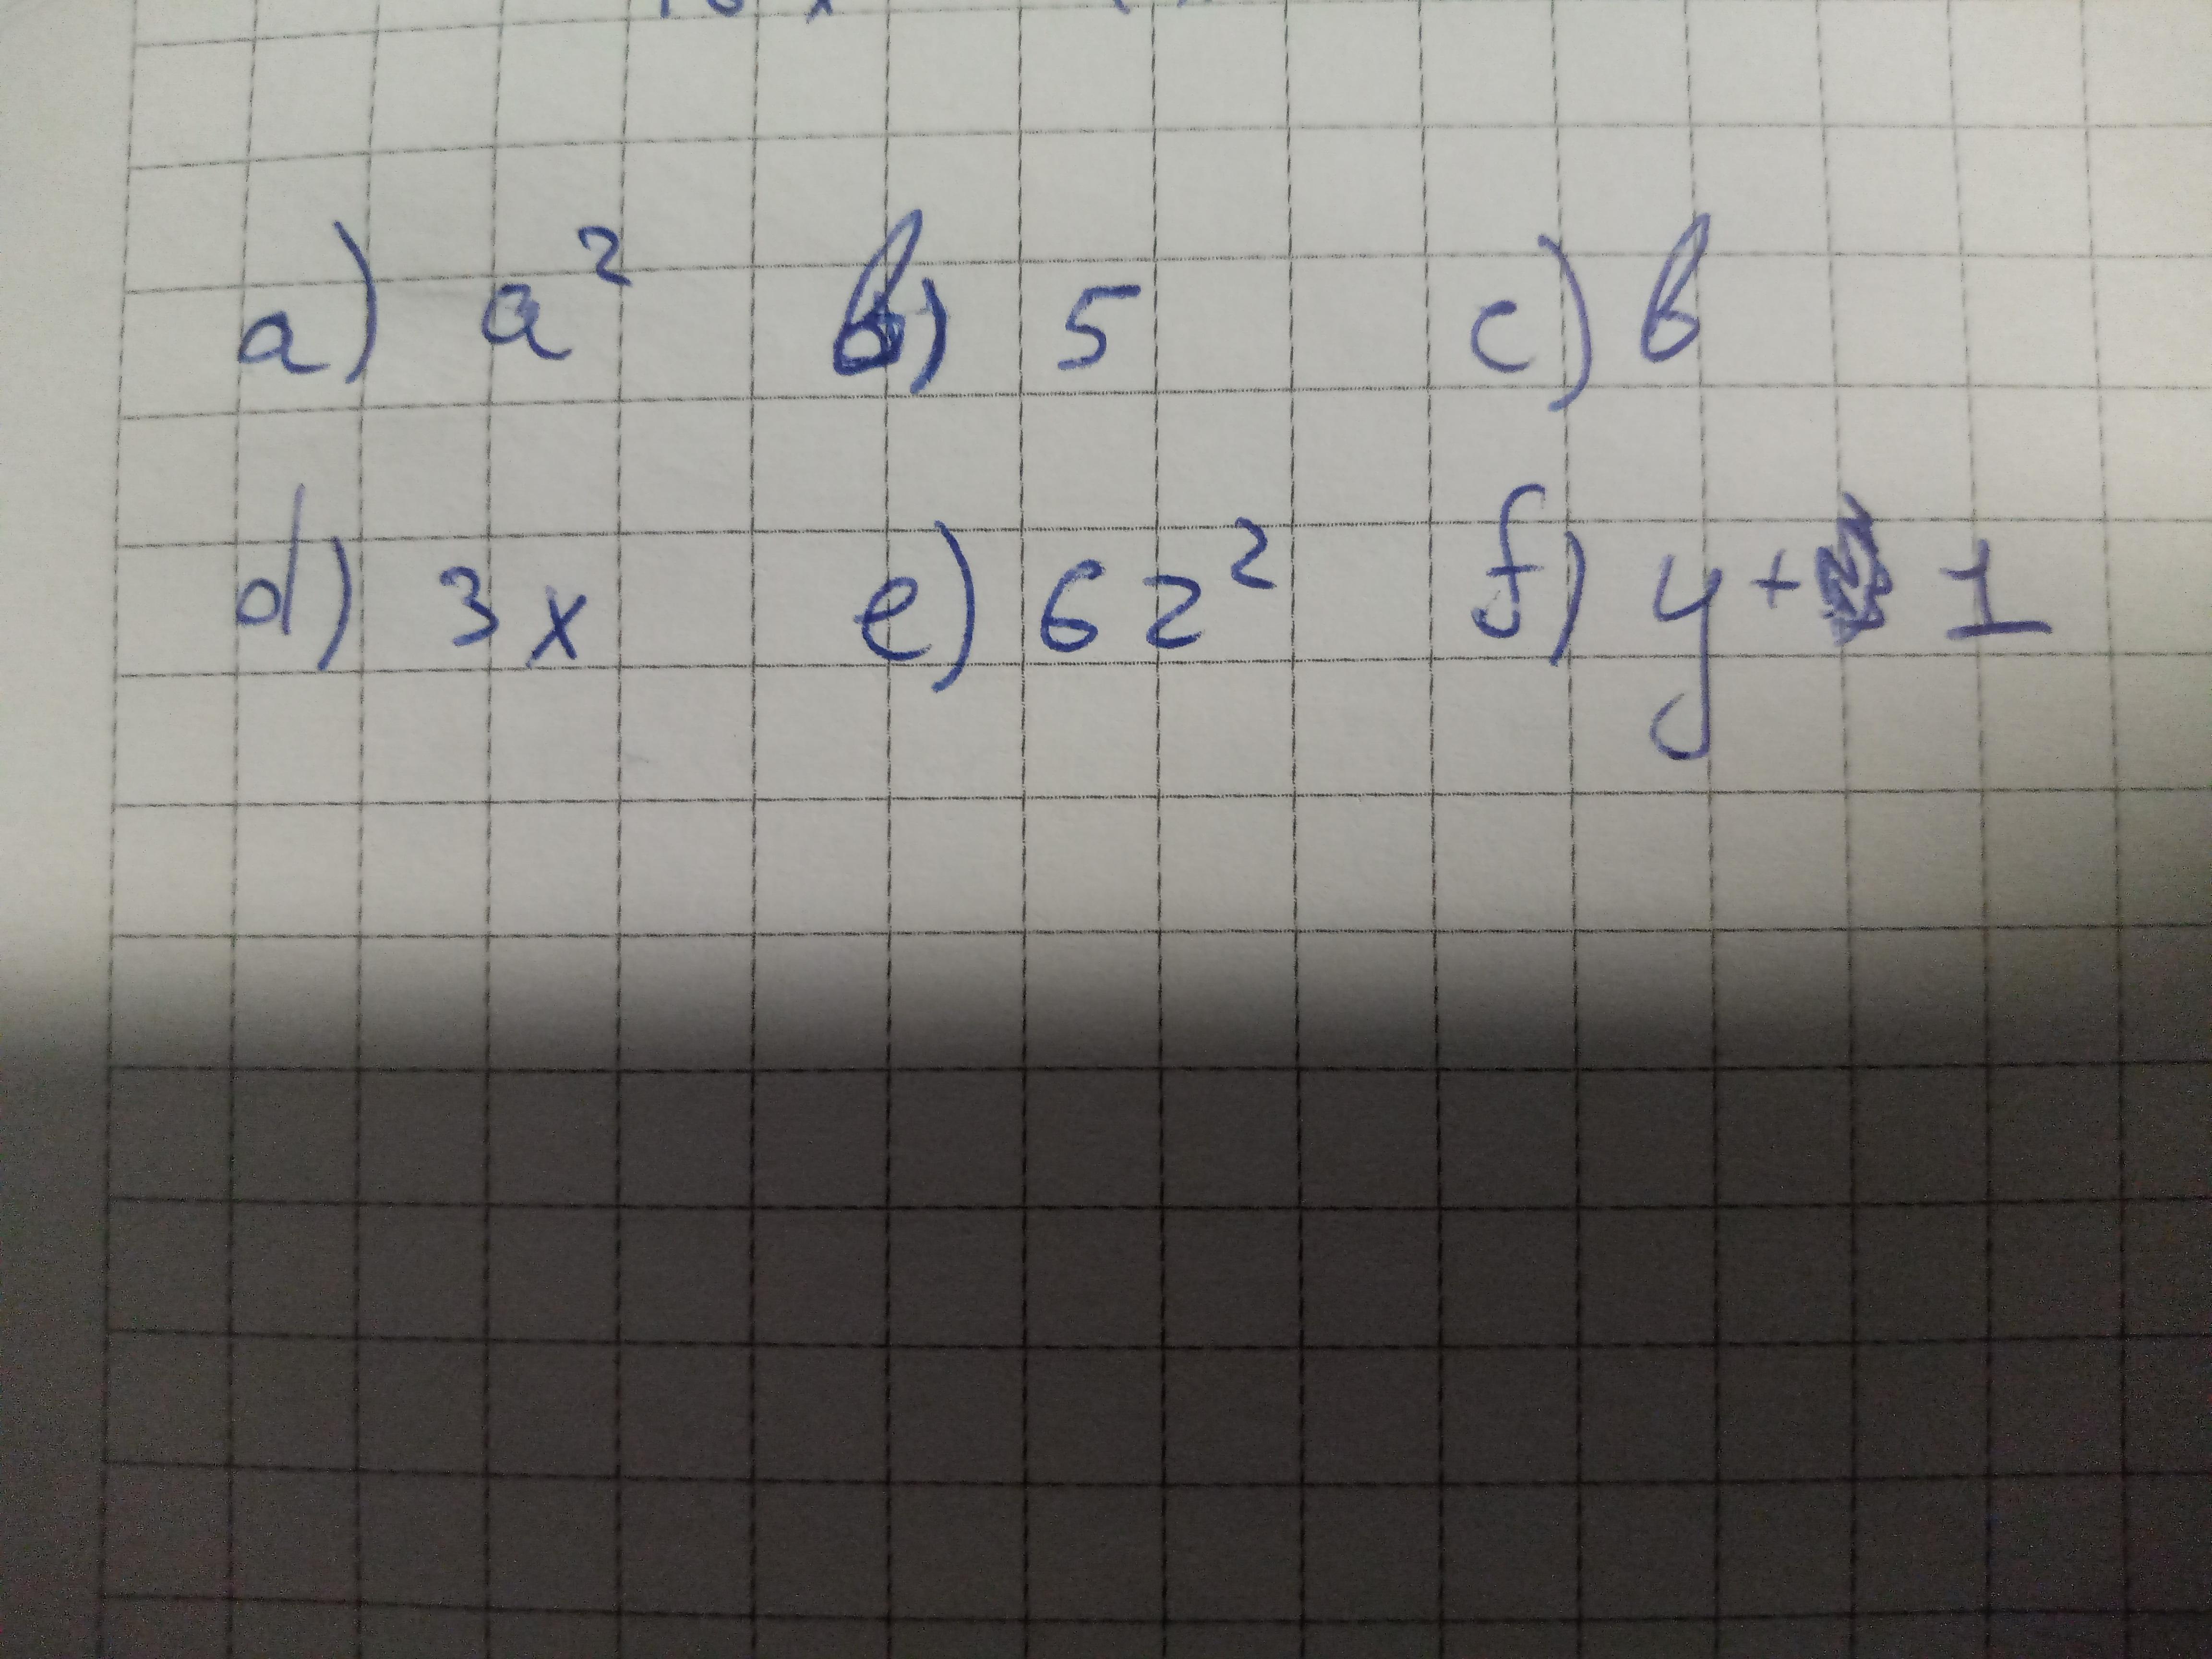 a) a² b) 5 c) b
d) 3x e) 6z² f) y + 1